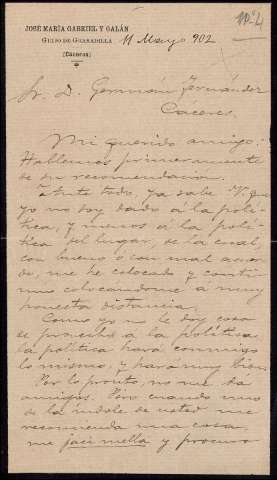 nº 4
JOSÉ MARÍA GABRIEL Y GALÁN
GUIJO DE GRANADILLA
(Cáceres)
11 Mayo 902
Sr. D. Germán Fernández
Cáceres.
Mi querido amigo:
Hablemos primeramente
de su recomendación.
Ante todo, ya sabe V. que
yo no soy dado á la polí-
tica, y menos á la polí-
tica del lugar, de la cual,
con bueno ó con mal acuer-
do, me he colocado y conti-
núo colocándome á muy
honesta distancia.
Como yo no le doy cosa
de provecho á la política,
la política hará conmigo
lo mismo, y hará muy bien.
Por lo pronto, no me dá
amigos. Pero cuando uno
de la índole de usted me
recomienda una cosa,
me y procuro